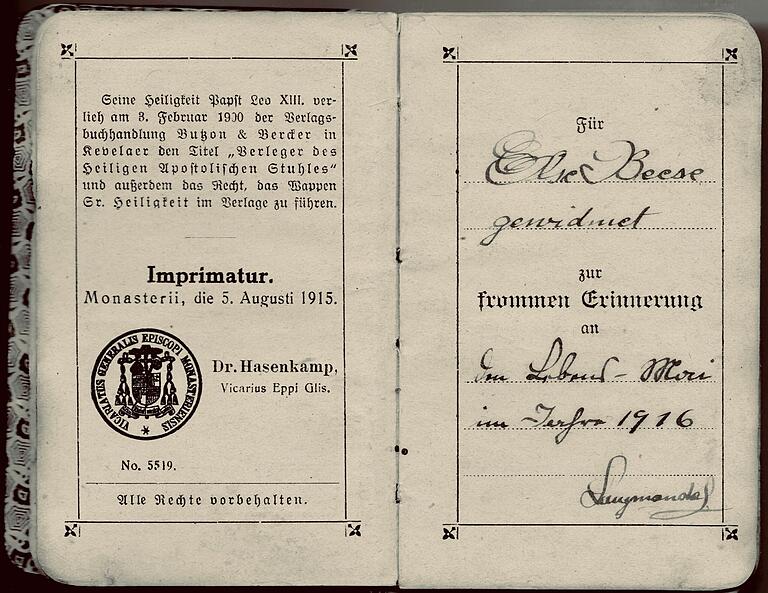 Seine Heiligkeit Papst Leo XIII. ver-
lieh am 3. Februar 1900 der Verlags-
buchhandlung Butzon & Bercker in
Kevelaer den Titel „Verleger des
Heiligen Apostolischen Stuhles“
und außerdem das Recht, das Wappen
Sr. Heiligkeit im Verlage zu führen.
Imprimatur.
Monasterii, die 5. Augusti 1915.
VICARIATUS GENERALIS EPISCOPI MONASTERIENSIS
Dr. Hasenkamp,
Vicarius Eppi Glis.
No. 5519.
Alle Rechte vorbehalten.
Für
Else Beese
gewidmet
zur
frommen Erinnerung
an
den
im Jahre 1916